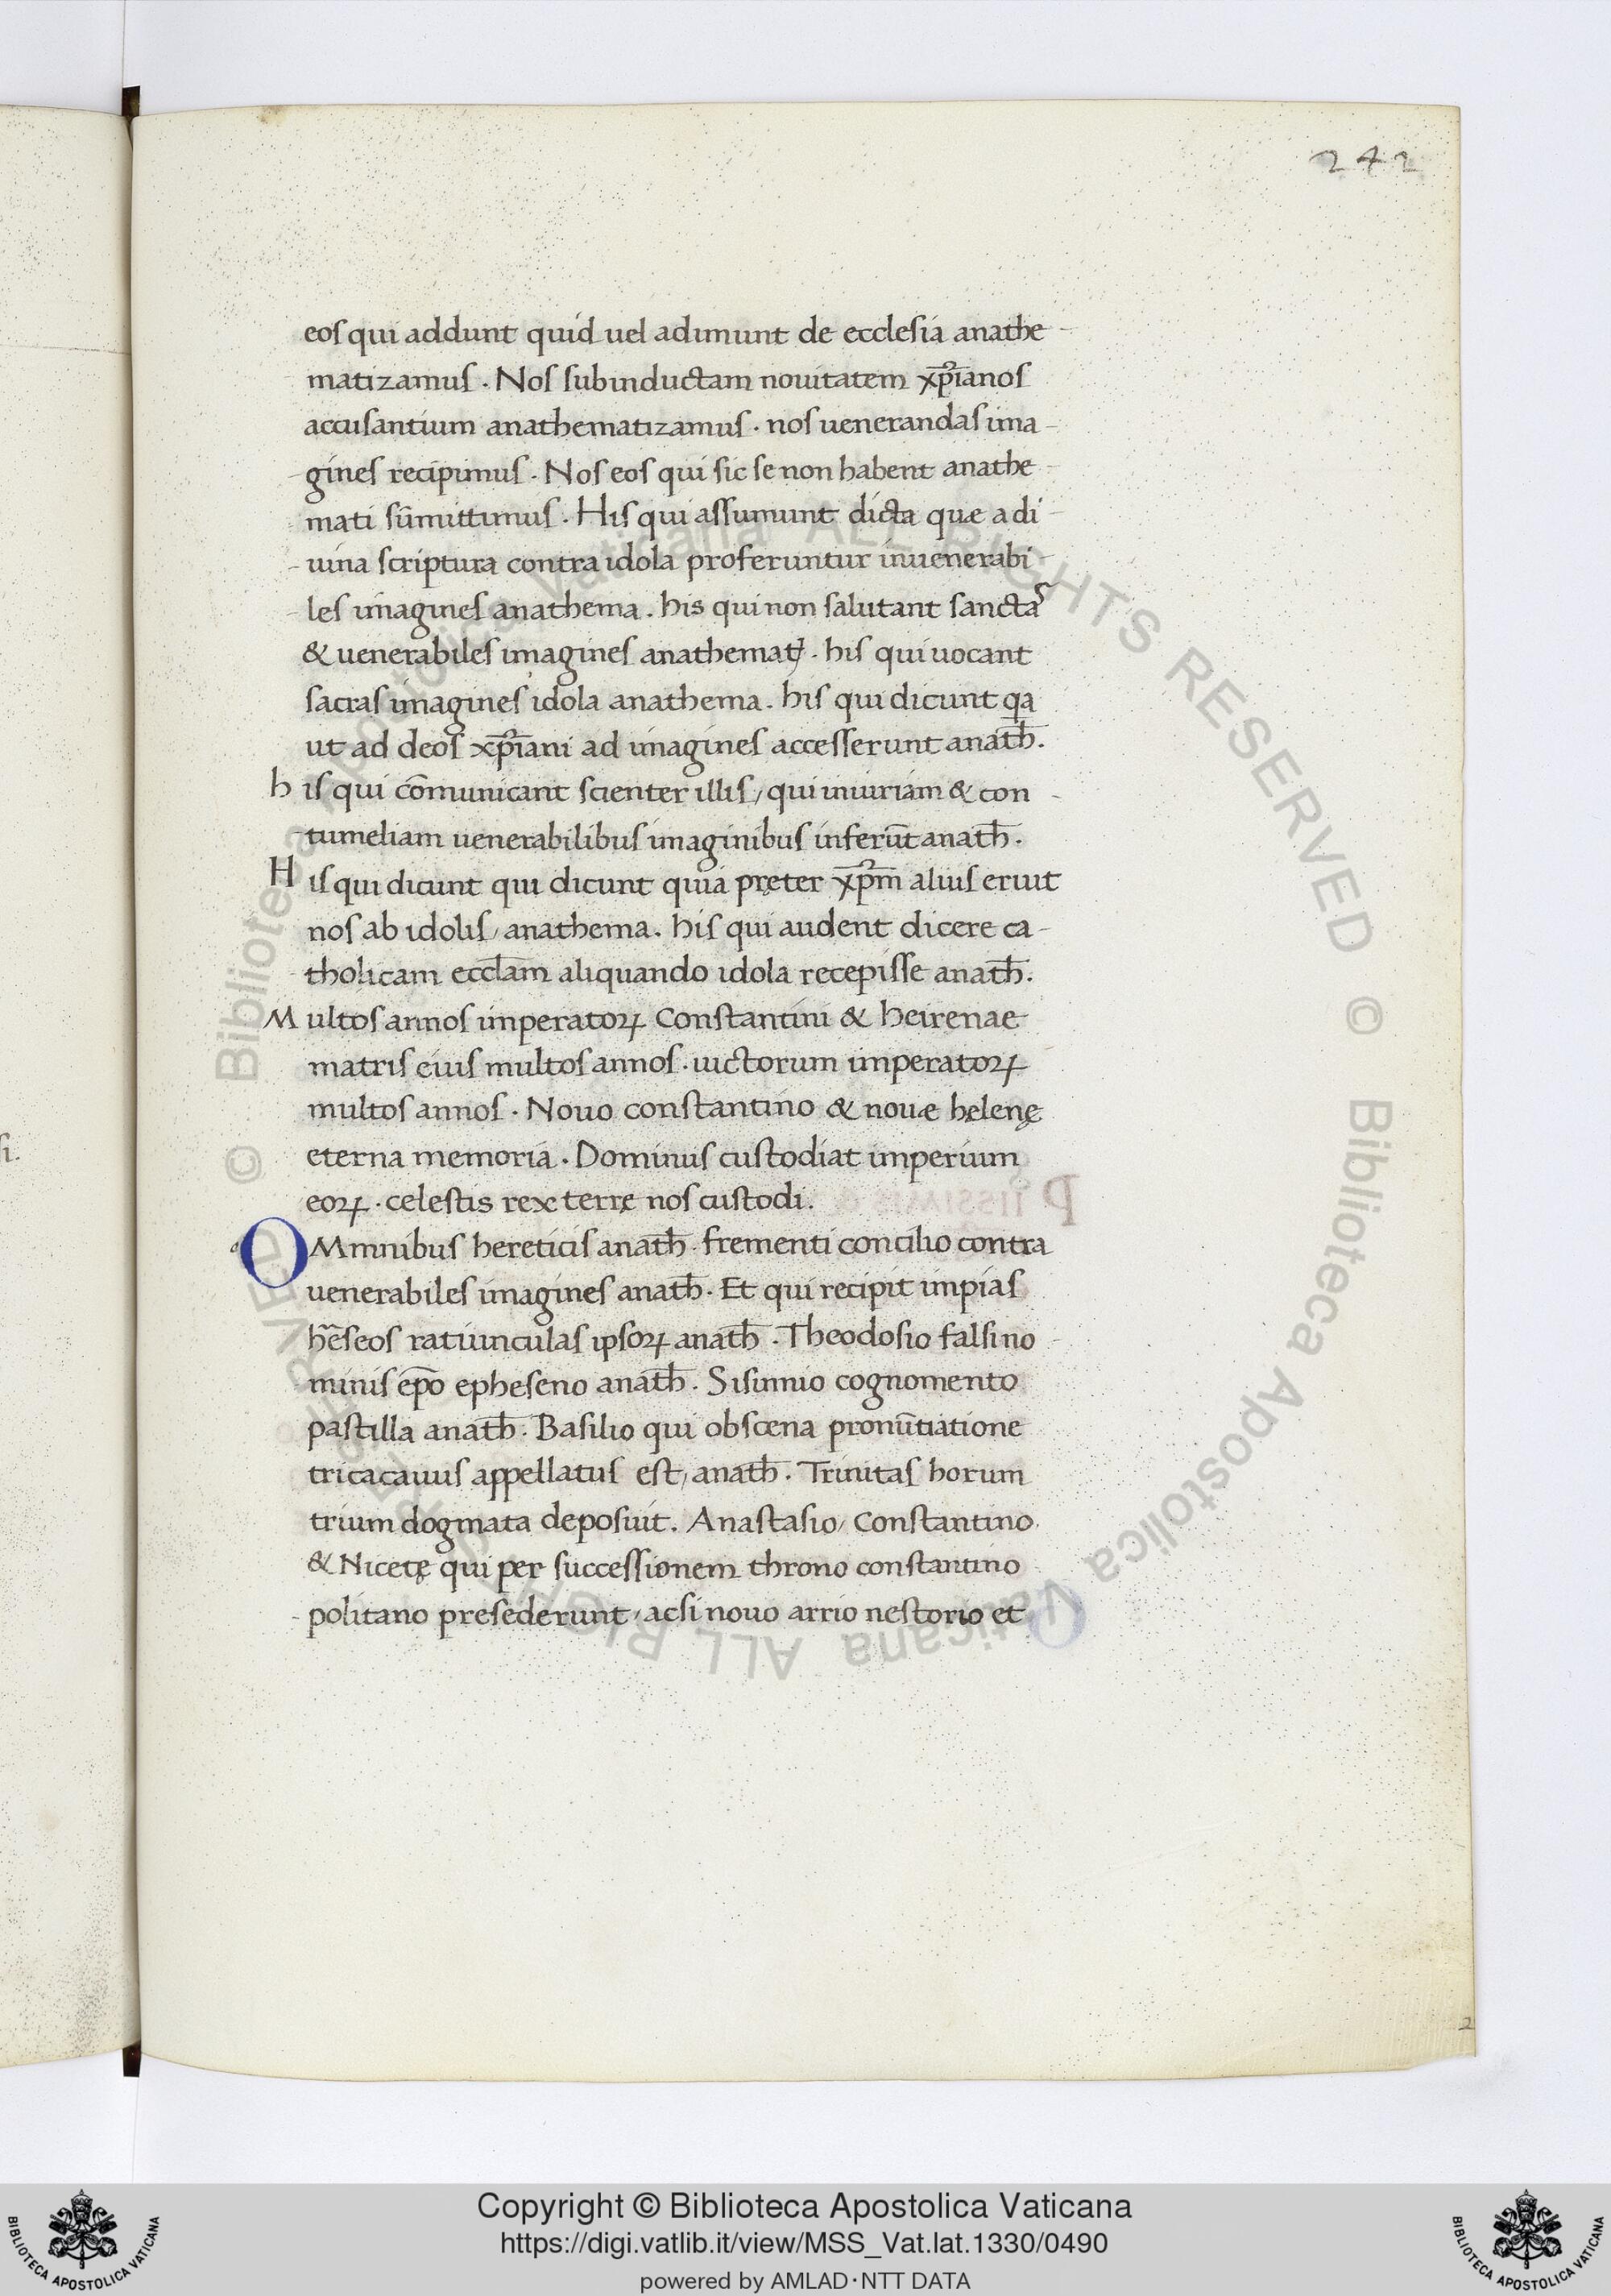 242
eos qui addunt quid uel adimunt de ecclesia anathe-
matizamus. Nos subinductam nouitatem xp̄ianos
accusantium anathematizamus. nos uenerandas ima-
gines recipimus. Nos eos qui sic se non habent anathe-
mati sūmittimus. His qui assumunt dicta quæ a di-
uina scriptura contra idola proferuntur inuenerabi-
les imagines anathema. his qui non salutant sanctas
& uenerabiles imagines anathemaꝫ. his qui uocant
sacras imagines idola anathema. his qui dicunt qa
ut ad deos xp̄iani ad imagines accesserunt anath̄.
his qui cōmunicant scienter illis, qui iniuriam & con-
tumeliam uenerabilibus imaginibus inferūt anath̄.
His qui dicunt qui dicunt quia pręter xp̄m alius eruit
nos ab idolis, anathema. his qui audent dicere ca-
tholicam eccl̄am aliquando idola recepisse anath̄.
Multos annos imperatoꝝ Constantini & heirenae
matris eius multos annos. uictorum imperatoꝝ
multos annos. Nouo constantino & nouæ helenę
eterna memoria. Dominus custodiat imperium
eoꝝ. celestis rex terrę nos custodi.
OMmnibus hereticis anath̄. frementi concilio contra
uenerabiles imagines anath̄. Et qui recipit impias
hēseos ratiunculas ipsoꝝ anath̄. Theodosio falsi no-
minis ep̄o epheseno anath̄. Sisinnio cognomento
pastilla anath̄. Basilio qui obscena pronūtiatione
tricacauus appellatus est, anath̄. Trinitas horum
trium dogmata deposuit. Anastasio, Constantino,
& Nicetę qui per successionem throno constantino
politano presederunt, acsi nouo arrio nestorio et
2
© Biblioteca Apostolica Vaticana ALL RIGHTS RESERVED © Biblioteca Apostolica Vaticana ALL RIGHTS RESERVED
Copyright © Biblioteca Apostolica Vaticana
https://digi.vatlib.it/view/MSS_Vat.lat.1330/0490
powered by AMLAD·NTT DATA
BIBLIOTECA APOSTOLICA VATICANA
BIBLIOTECA APOSTOLICA VATICANA